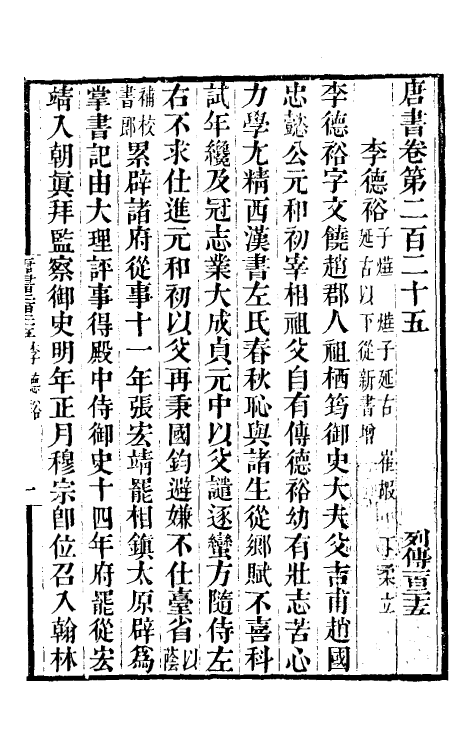 唐書卷第二百二十五 列傳百三十五
李德裕 子燁 燁子延古 崔嘏 丁柔立
延古以下從新書增
李德裕字文饒趙郡人祖栖筠御史大夫父吉甫趙國
忠懿公元和初宰相祖父自有傳德裕幼有壯志苦心
力學尤精西漢書左氏春秋恥與諸生從鄉賦不喜科
試年纔及冠志業大成貞元中以父譴逐蠻方隨侍左
右不求仕進元和初以父再秉國鈞避嫌不仕臺省以蔭
補校書郎累辟諸府從事十一年張宏靖罷相鎮太原辟爲
掌書記由大理評事得殿中侍御史十四年府罷從宏
靖入朝眞拜監察御史明年正月穆宗卽位召入翰林
李德裕
一